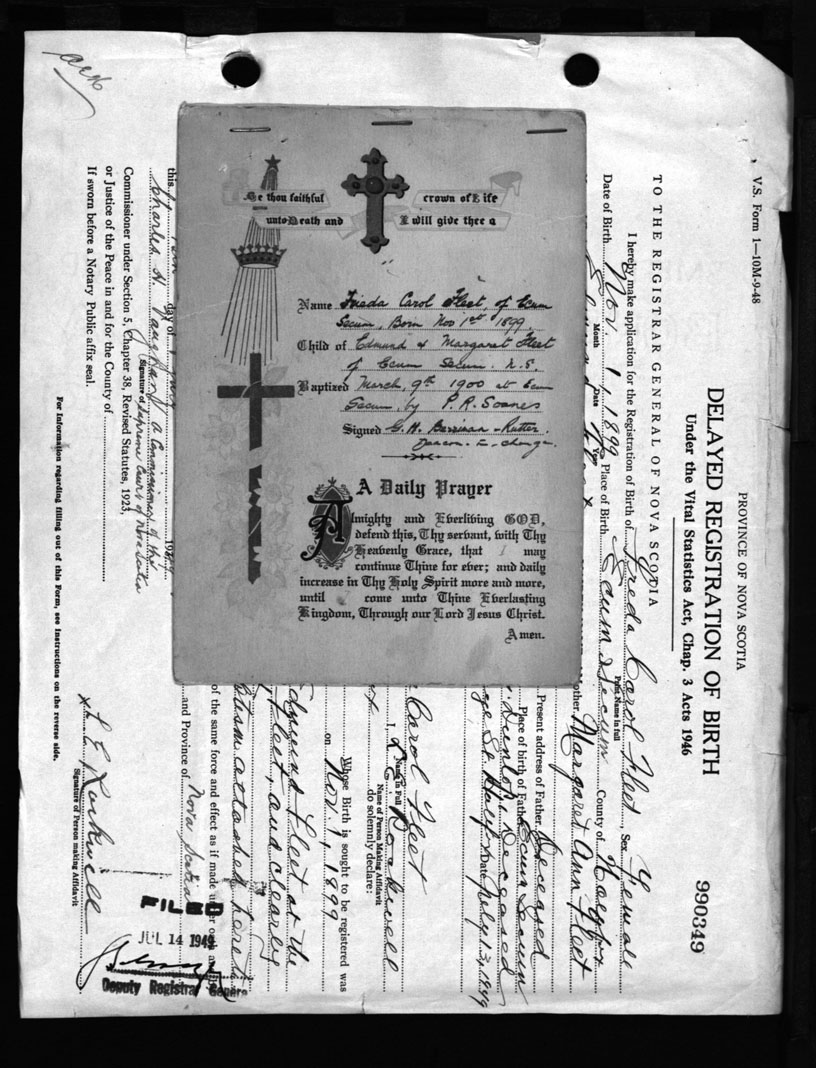 Be thou faithful
crown of Life
unto Death and
I will give thee a
Name Frieda Carol Fleet, of Ecum
Secum, Born Nov 1st 1899.
Child of Edmund & Margaret Fleet
of Ecum Secum. N.S.
Baptized March, 9th 1900 at Ecum
Secum by P.R. Soanes
Signed G.H.
Deacon-in-charge.
A Daily Prayer
Almighty and Everliving GOD,
defend this, Thy servant, with Thy
Heavenly Grace, that I may
continue Thine for ever; and daily
increase in Thy Holy Spirit more and more,
until come unto Thine Everlasting
Kingdom, Through our Lord Jesus Christ.
Amen.
V.S. Form 1—10M-9-48
PROVINCE OF NOVA SCOTIA
990349
DELAYED REGISTRATION OF BIRTH
Under the Vital Statistics Act, Chap. 3 Acts 1946
TO THE REGISTRAR GENERAL OF NOVA SCOTIA
I hereby make application for the Registration of Birth of Freda Carol Fleet, Sex Female
Print Name in full
Date of Birth Nov. 1 1899 Place of Birth Ecum Secum County of Halifax
Month Date Year
Mother Margaret Ann Fleet
Present address of Father Deceased
Place of birth of Father Ecum Secum
Deceased
St. Halifax Date July 13, 1949
Carol Fleet
I, L. E. Rockwell
Name in Full
Name of Person Making Affidavit
do solemnly declare:
Whose Birth is sought to be registered was
on Nov. 1, 1899
Fleet at the
Fleet, and clearly
attached hereto
of the same force and effect as if made
and Province of Nova Scotia
this day of July 1949
Charles H. Vaughan, a Commissioner of the
(Signature of) Supreme Court of Nova Scotia
Commissioner under Section 5, Chapter 38, Revised Statutes, 1923,
or Justice of the Peace in and for the County of
If sworn before a Notary Public affix seal.
L E Rockwell
Signature of Person making Affidavit
For information regarding filling out of this Form, see Instructions on the reverse side.
FILED
JUL 14 1949
Deputy Registrar General